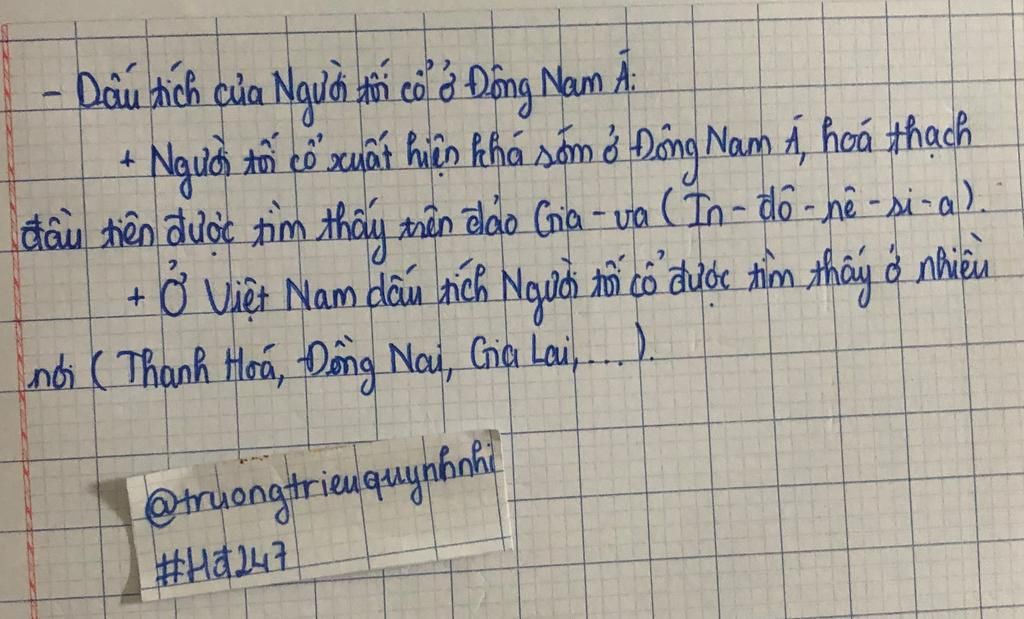 - Dấu tích của Người tối cổ ở Đông Nam Á:
+ Người tối cổ xuất hiện khá sớm ở Đông Nam Á, hoá thạch
đầu tiên được tìm thấy trên đảo Gia-va (In-đô-nê-si-a).
+ Ở Việt Nam dấu tích Người tối cổ được tìm thấy ở nhiều
nơi (Thanh Hoá, Đồng Nai, Gia Lai,...).
@truongtrieuquynhnhi
#Hđ247